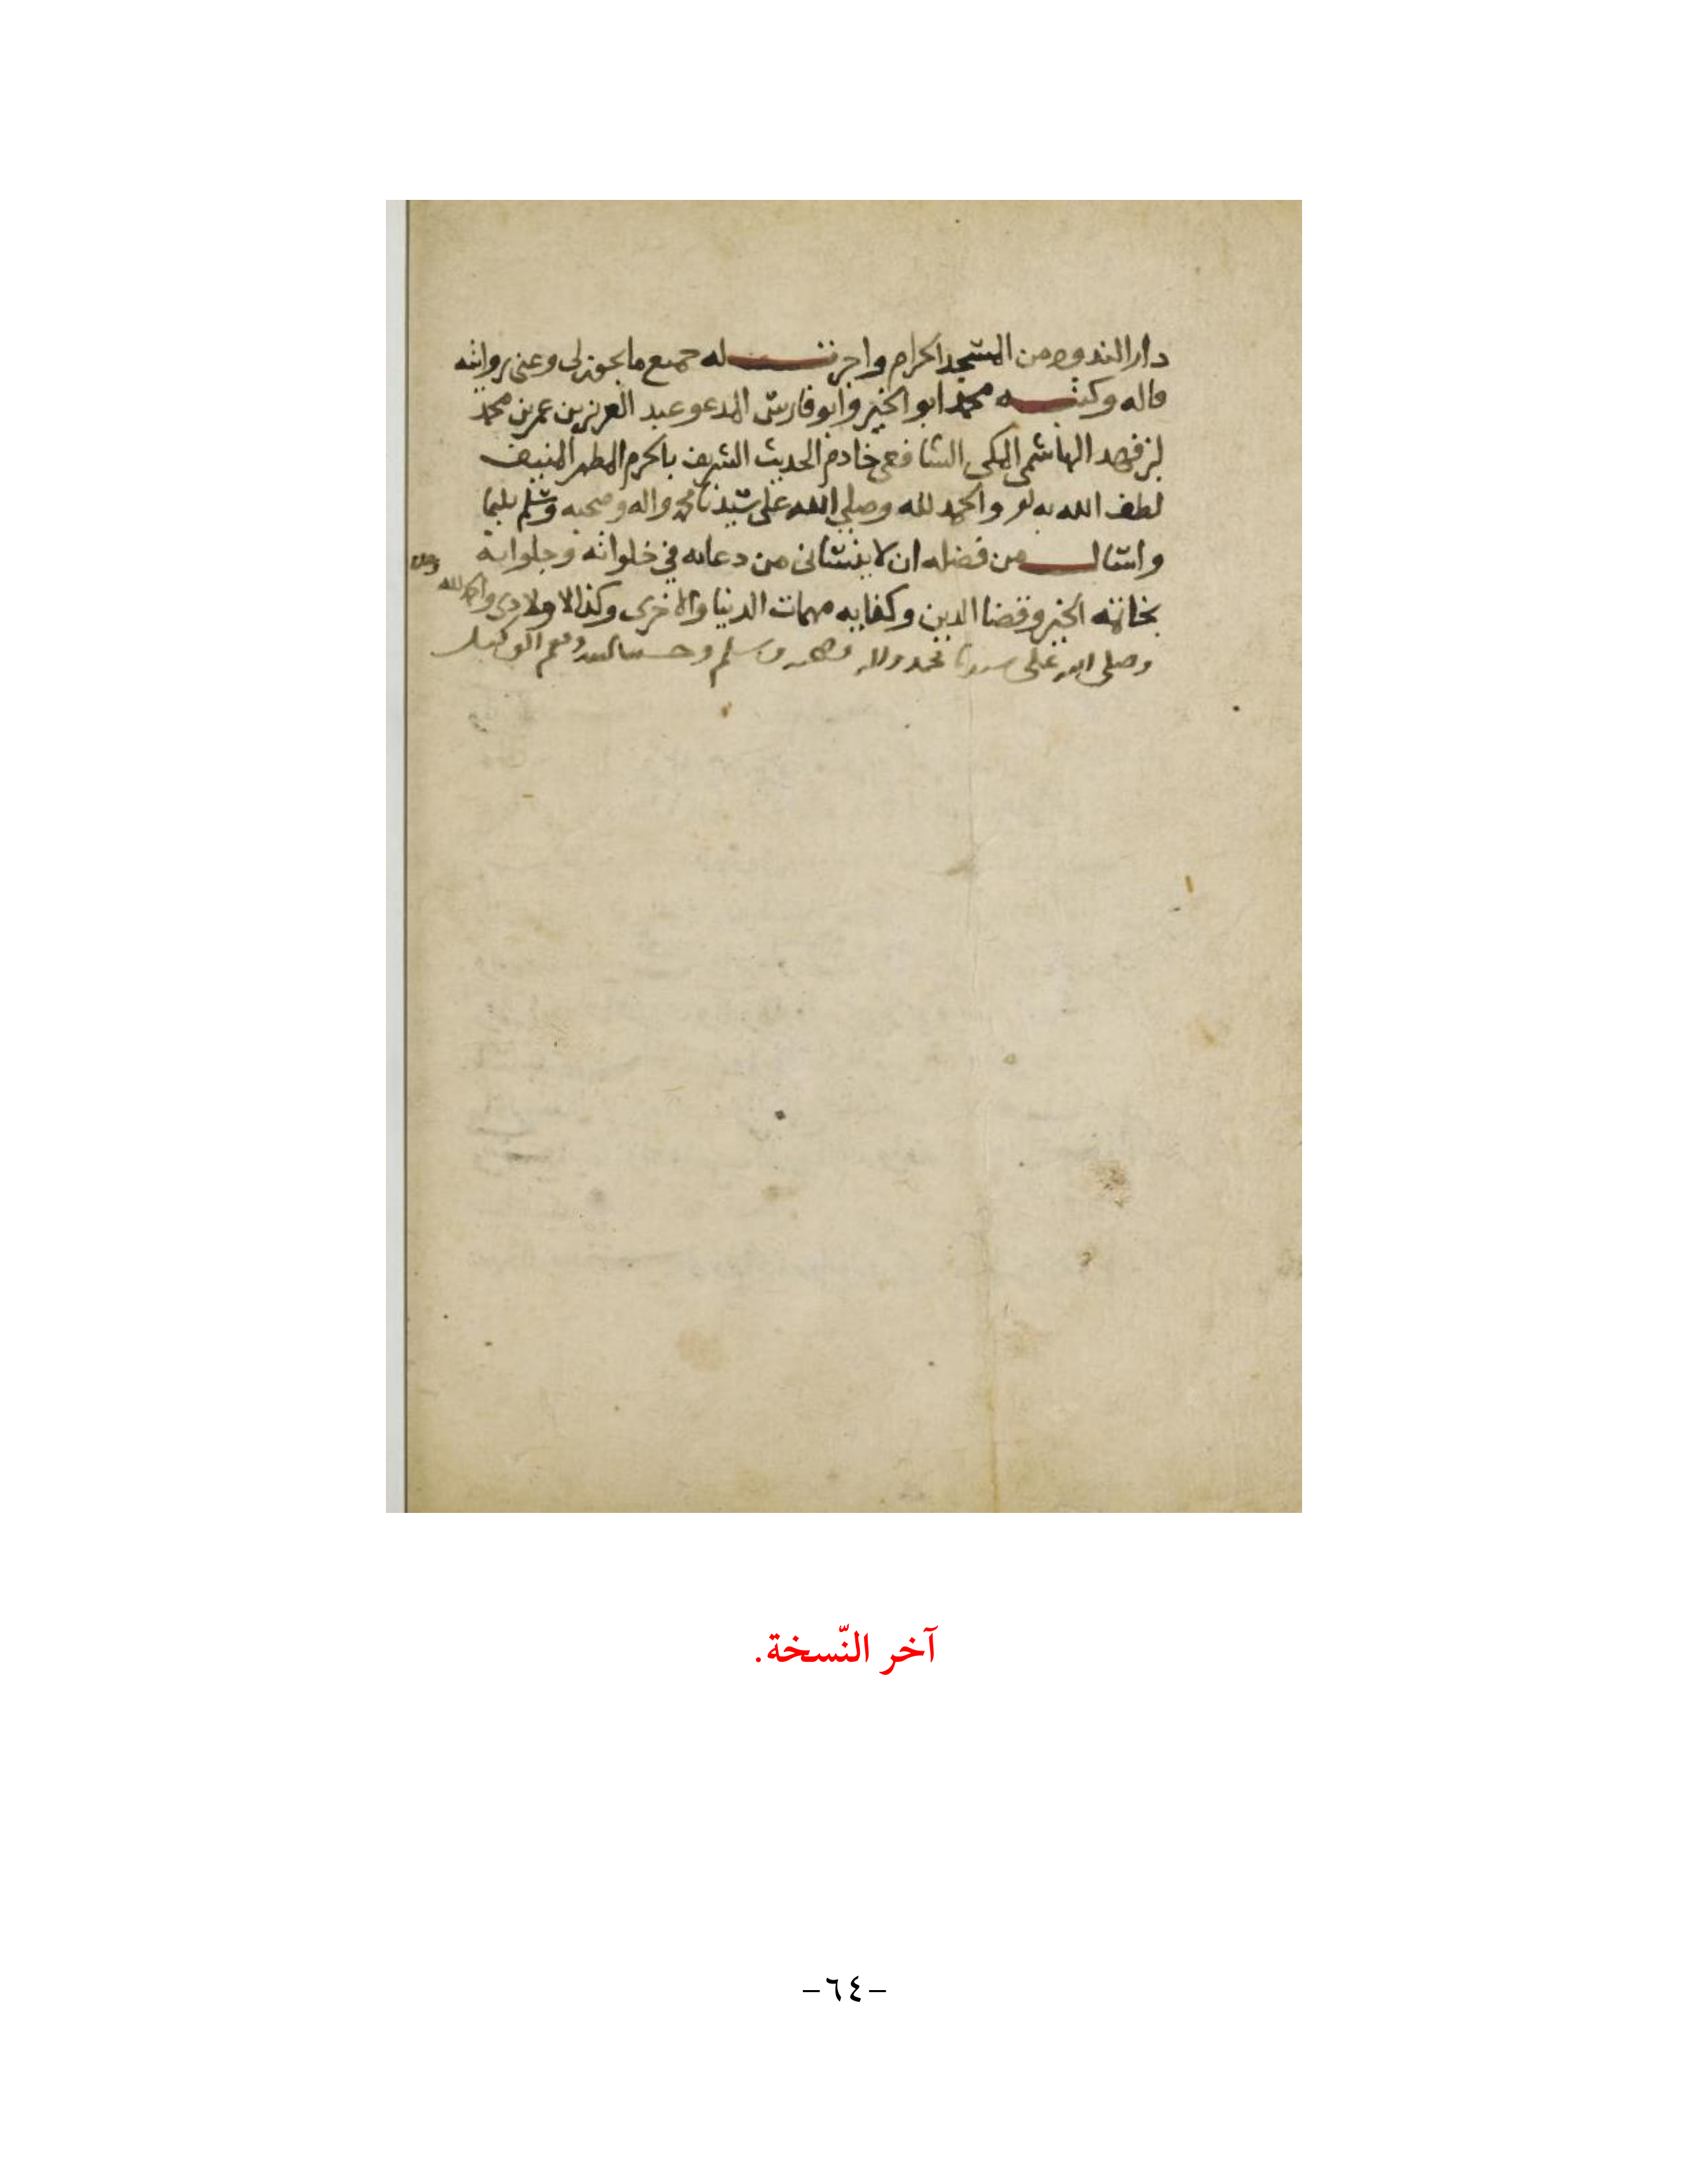 دار الندوه من المسجد الحرام واجزت له جميع ما يجوز لي وعني روايته
قاله وكتبه محمد ابو الخير وابو فارس المدعو عبد العزيز بن عمر بن محمد
بن فهد الهاشمي المكي الشافعي خادم الحديث الشريف بالحرم المطهر المنيف
لطف الله به والحمد لله وصلى الله على سيدنا محمد واله وصحبه وسلم
واسال من فضله ان لا ينساني من دعائه في خلواته وجلواته
بخاتمة الخير وقضا الدين وكفاية مهمات الدنيا والاخرى وكذا لاولادي والحمد لله
وصلى الله على سيدنا محمد واله وصحبه وسلم وحسبنا الله ونعم الوكيل
آخر النّسخة.
-٦٤-